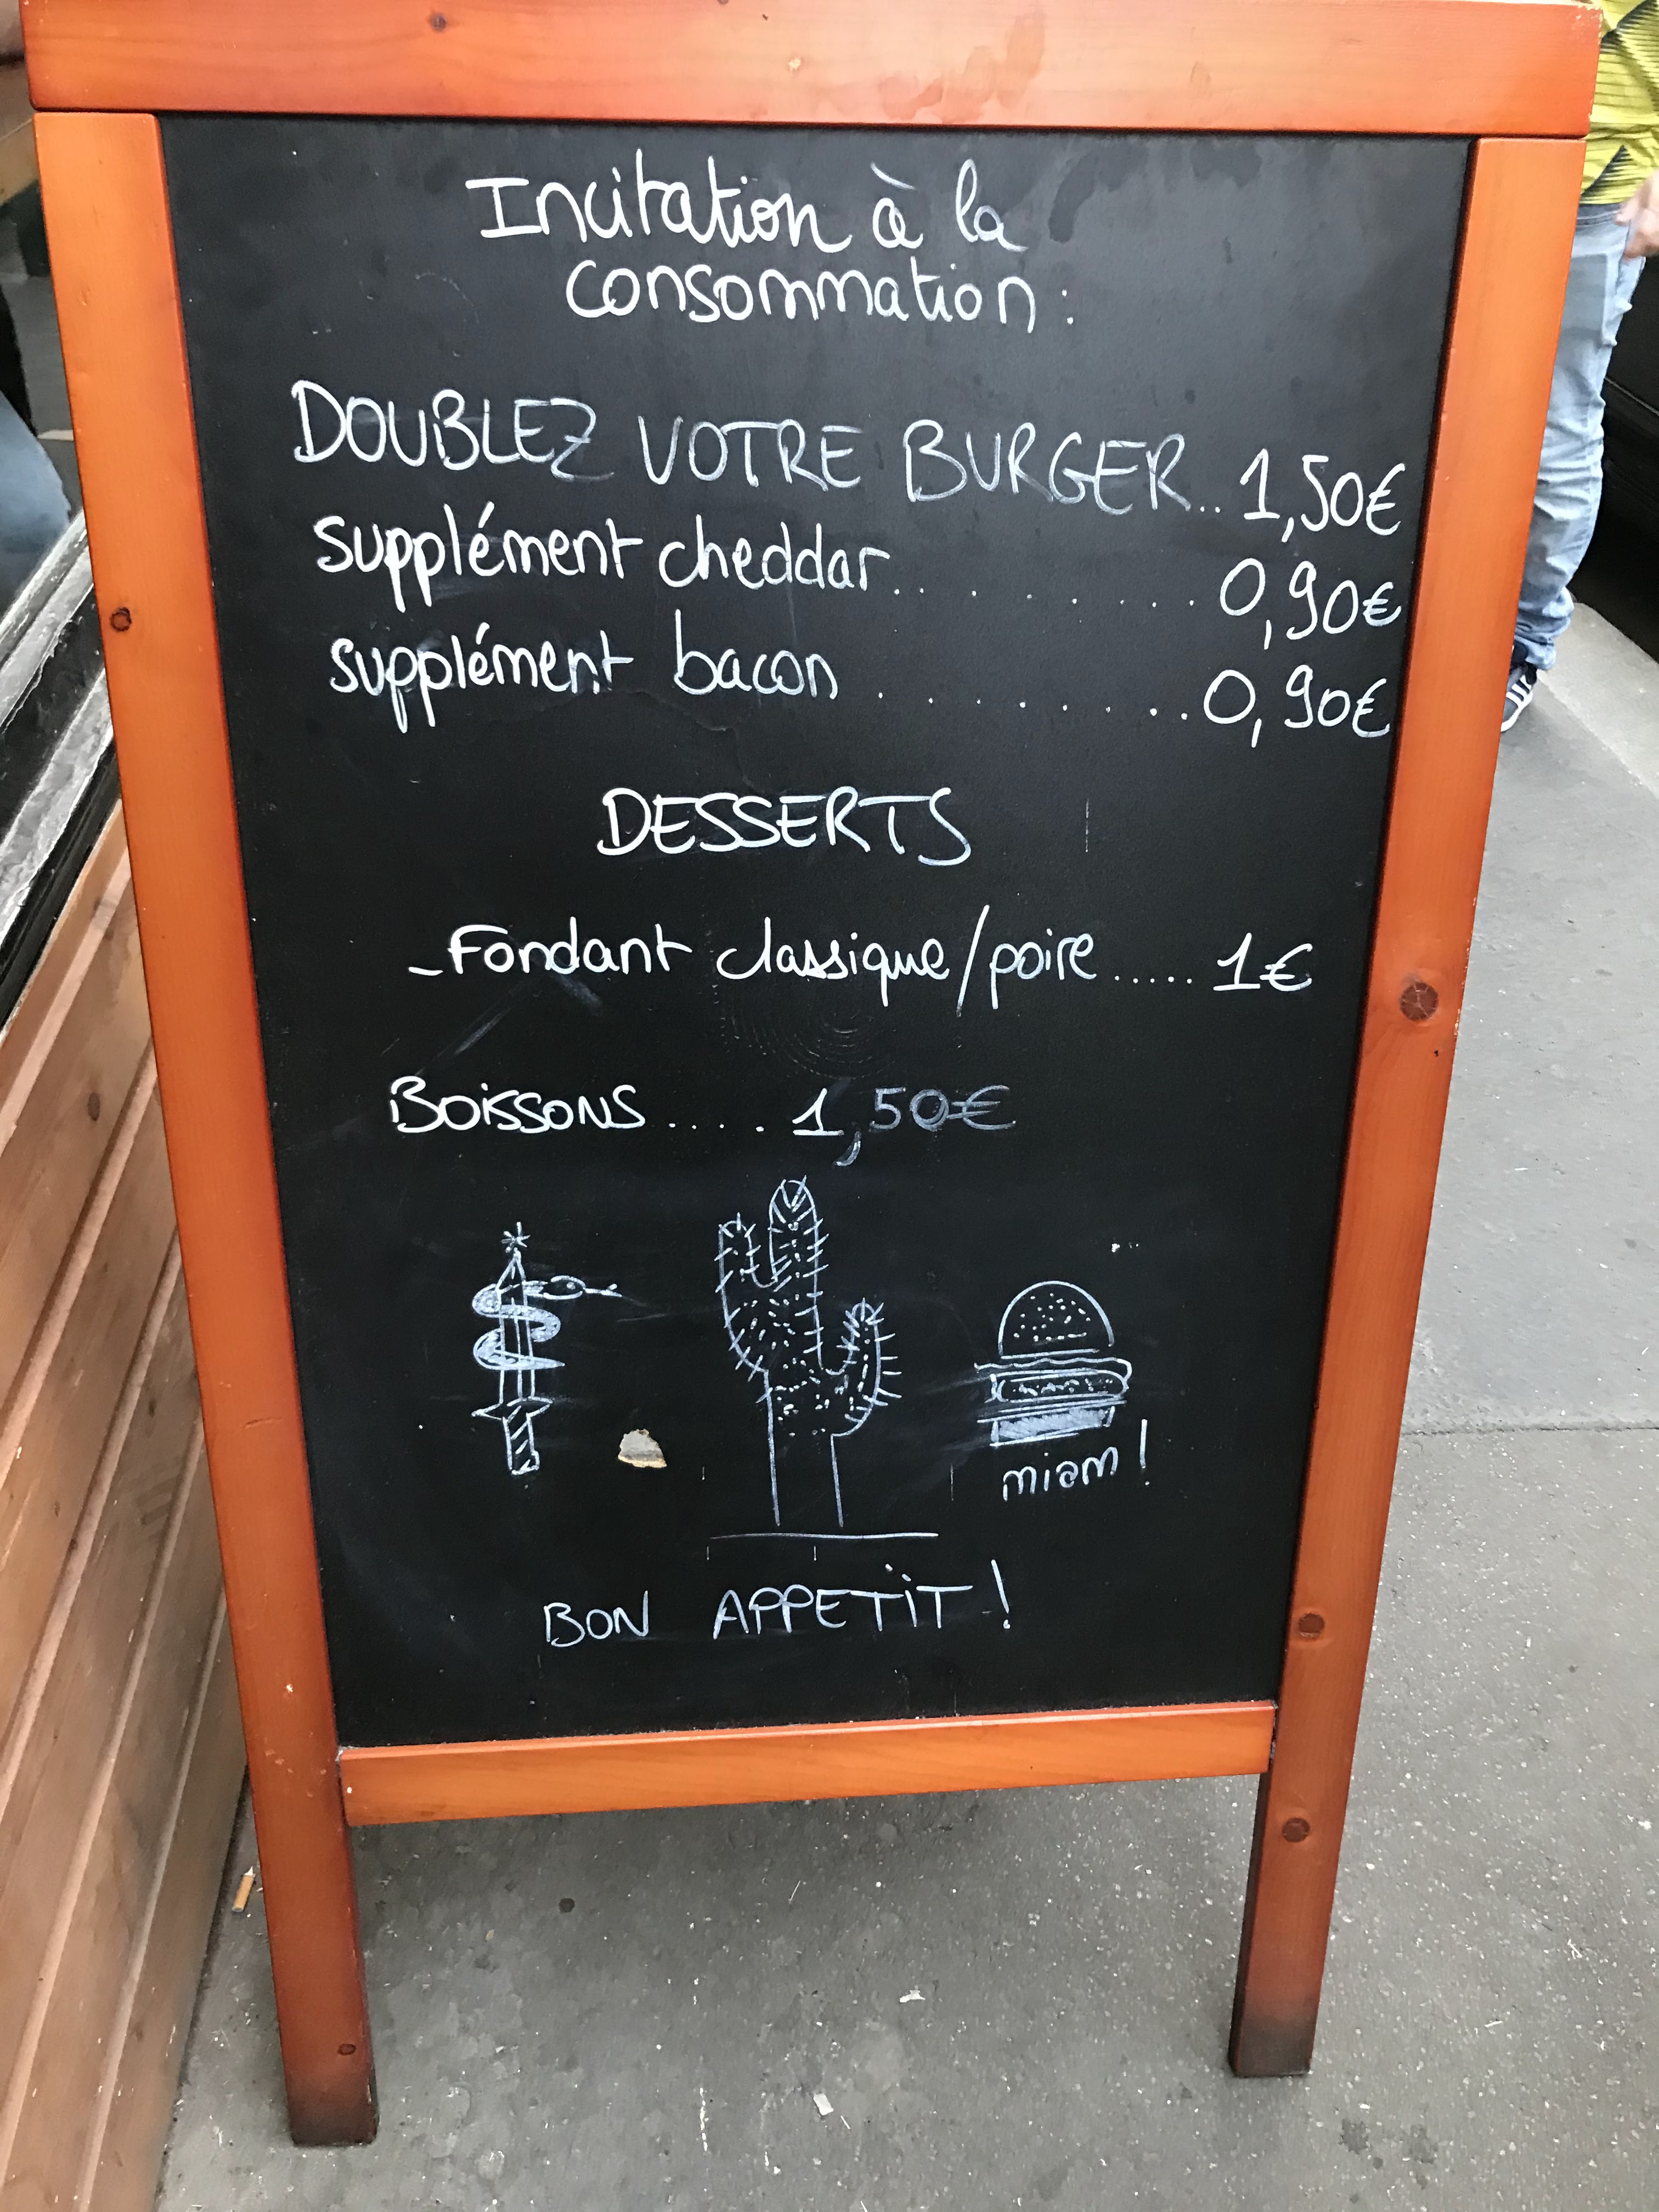 Incitation à la
consommation :
DOUBLEZ VOTRE BURGER.. 1,50€
supplément cheddar.......... 0,90€
supplément bacon ........ 0,90€
DESSERTS
- Fondant classique/poire ..... 1€
BOISSONS .... 1,50€
miam !
BON APPETIT !